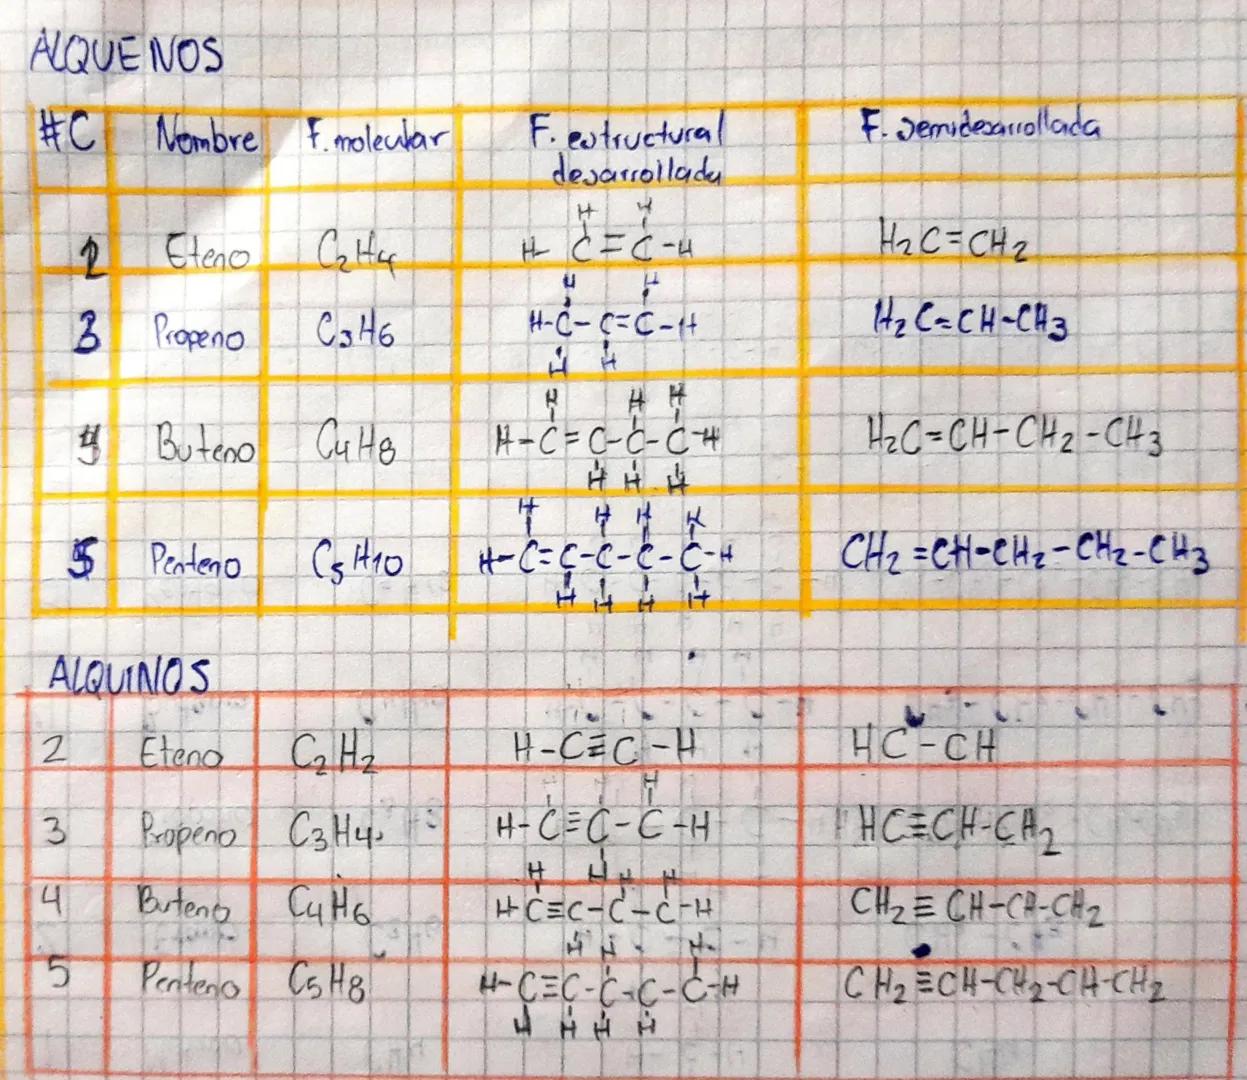 ALQUENOS
#C Nombre F. molecular F. estructural desarrollada F. semidesarrollada
2 Eteno C2H4 H H
H- C=C-H H2C=CH2
H H
3 Propeno C3H6 H-C-C=C-H H2C=CH-CH3
H H
H H H
4 Buteno C4H8 H-C=C-C-C-H H2C=CH-CH2-CH3
H H H
H H H H
5 Penteno C5H10 H-C=C-C-C-C-H CH2=CH-CH2-CH2-CH3
H H H H
ALQUINOS
2 Eteno C2H2 H-C≡C-H HC-CH
H
3 Propeno C3H4 H-C≡C-C-H HC≡CH-CH2
H H H H
4 Buteno C4H6 H-C≡C-C-C-H CH2≡CH-CH-CH2
H H H
5 Penteno C5H8 H-C≡C-C-C-C-H CH2≡CH-CH2-CH-CH2
H H H H